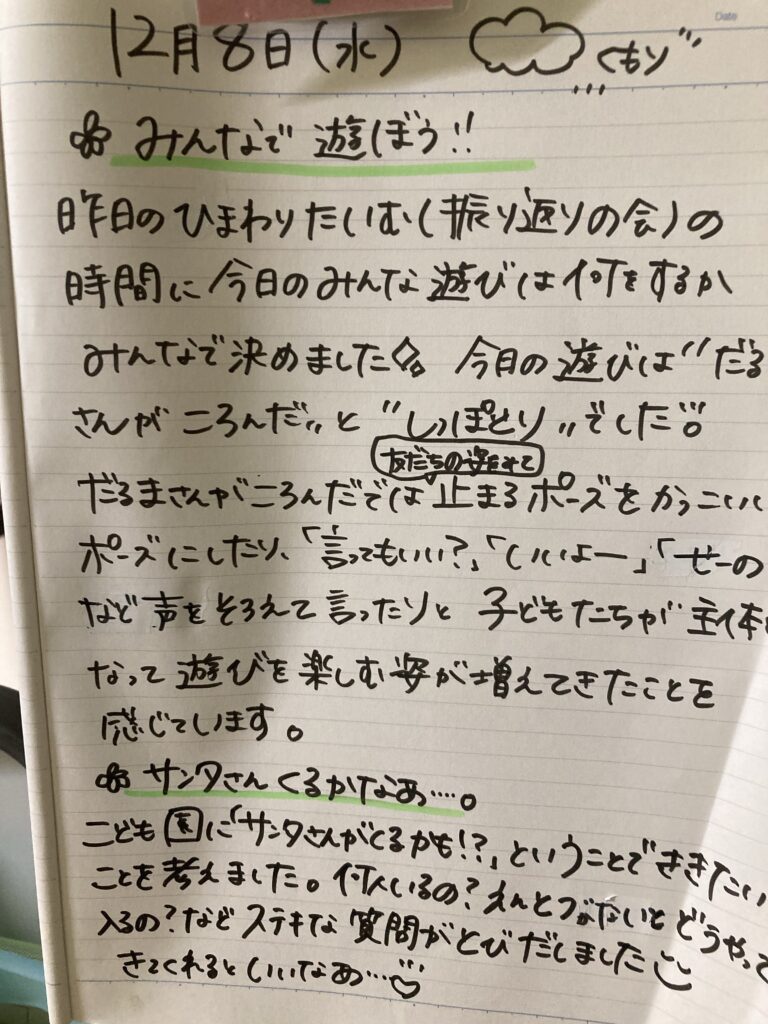 Date
12月8日(水) くもり
みんなで 遊ぼう!!
昨日のひまわりたいむ(振り返りの会)の
時間に今日のみんな遊びは何をするか
みんなで決めました 今日の遊びは"だる
さんが ころんだ"と "しっぽとり"でした
友だちの姿をみて
だるまさんがころんだでは止まるポーズをかっこいい
ポーズにしたり、「言ってもいい?」「いいよー」「せーの
など声をそろえて言ったりと 子どもたちが主体
なって遊びを楽しむ姿が増えてきたことを
感じています。
サンタさんくるかなぁ…。
こども園に「サンタさんがくるかも!?」ということでききたい
ことを考えました。何人いるの?えんとつがないとどうやって
入るの?など ステキな質問がとびだしました
きてくれるといいなぁ…